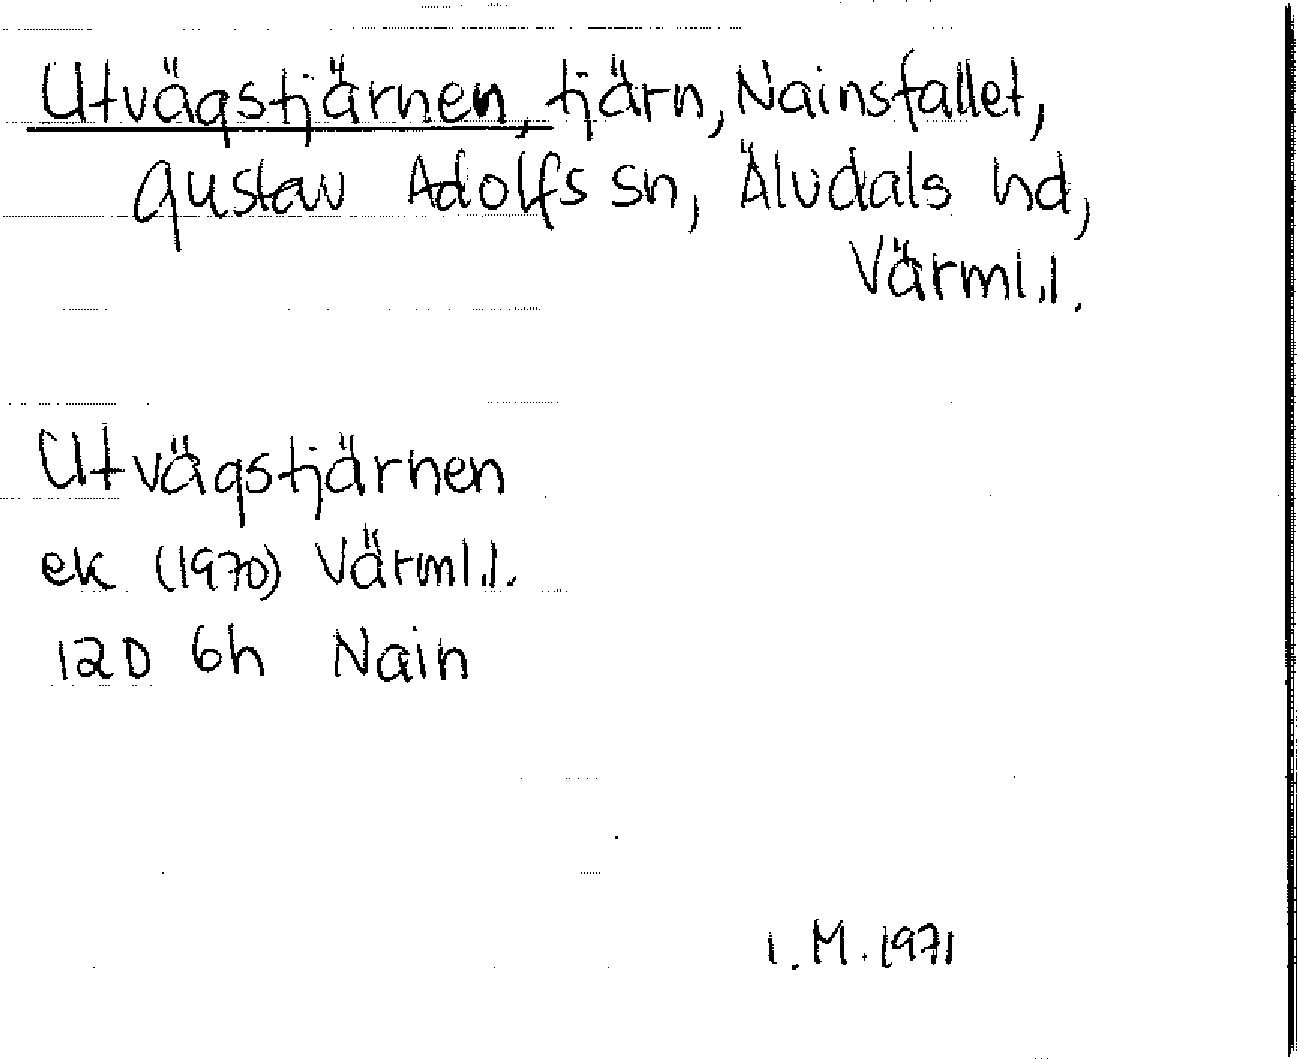 Utvägstjärnen, tjärn, Nainsfallet,
Gustav Adolfs sn, Älvdals hd,
Värml.l.
Utvägstjärnen
ek (1970) Värml.l.
12D 6h Nain
I.M. 1971